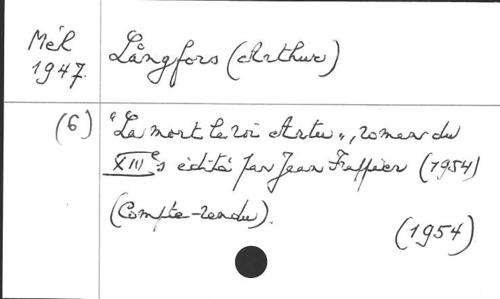 Mél
1947.
Långfors (Arthur)
(6)
"La mort le roi Artu", roman du
XIIIe s édité par Jean Frappier (1954)
(Compte-rendu).
(1954)